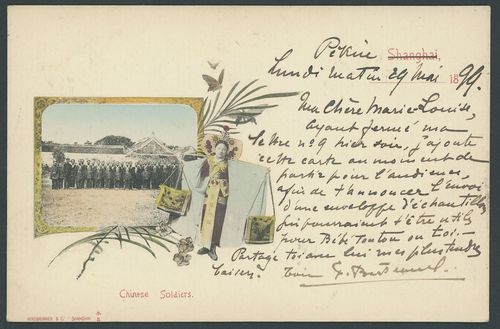 Pékin Shanghai,
Lundi matin 29 Mai 1899.
Ma Chère Marie-Louise,
Ayant fermé ma
lettre nº 9 hier soir, j'ajoute
cette carte au moment de
partir pour l'audience,
afin de t'annoncer l'envoi
d'une enveloppe d'échantillons
qui pourraient t'être utiles
pour Bébé Tonton ou toi.-
Partage toi avec lui mes plus tendres
baisers. Ton
Chinese Soldiers.
& Cº SHANGHAI